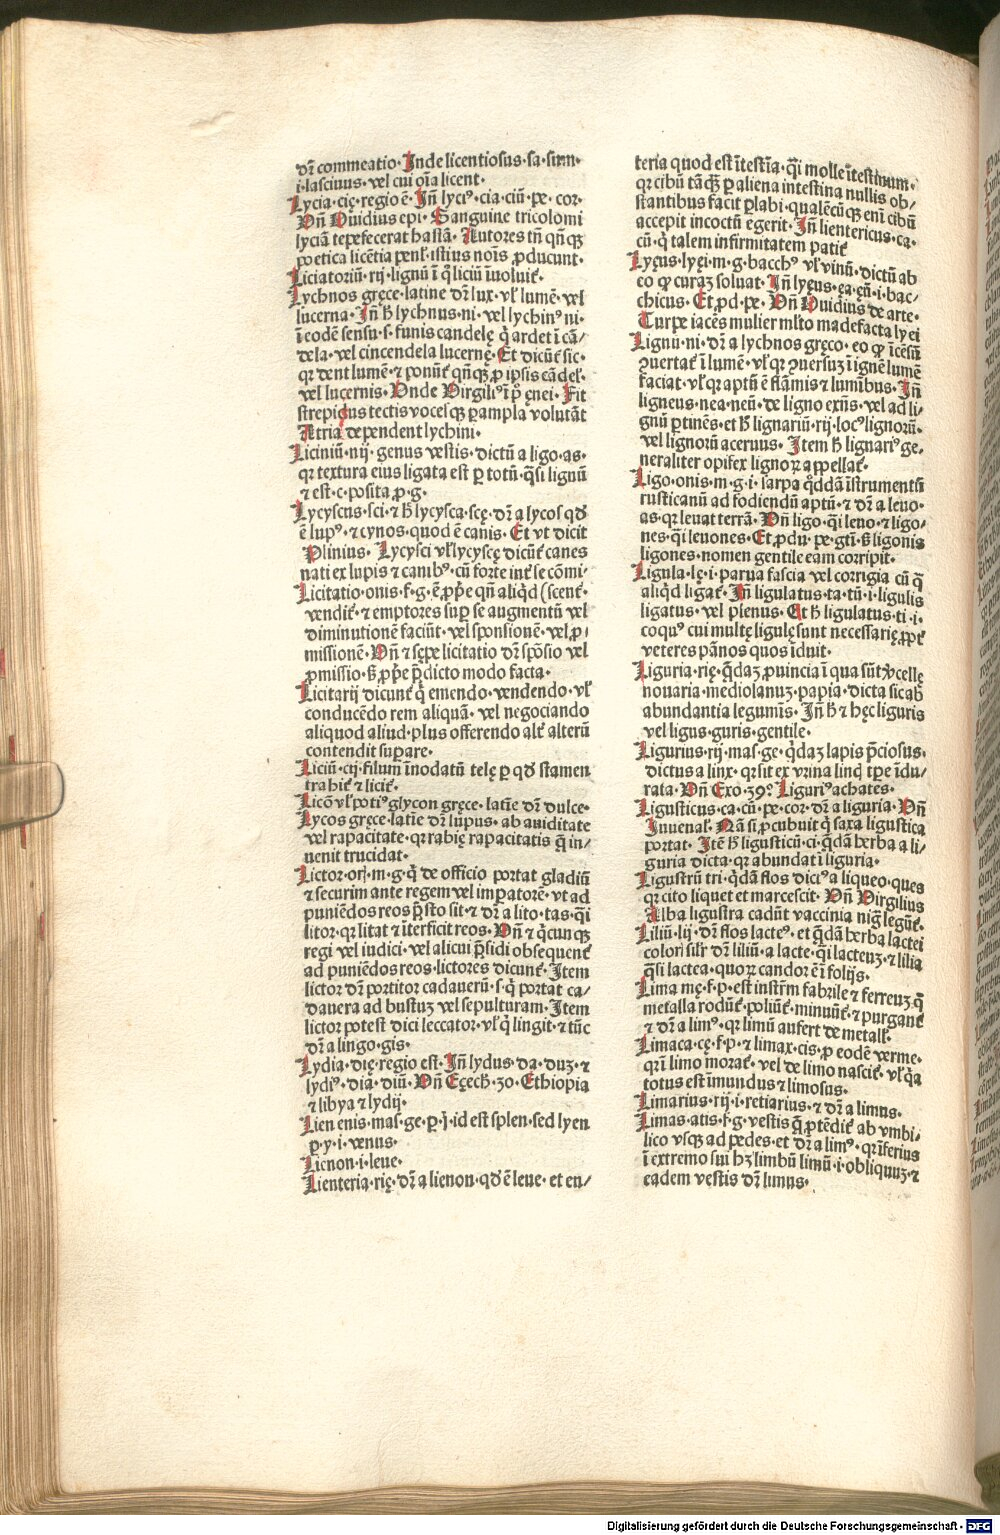 dr̄ commeatio·Inde licentiosus·sa·sum·
i·lasciuus·vel cui oīa licent·
Lycia·cię·regio ē·Iñ lyciꝰ·cia·ciū·pe·cor·
Vñ Ouidius epi·Sanguine tricolomi
lyciā tepefecerat hastā·Autores tñ qñqꝫ
poetica licētia penł·istius noīs ꝓducunt·
Liciatoriū·rij·lignū ī q̊ liciū īuoluit᷑·
Lychnos gręce·latine dr̄ lux·vł lumē·vel
lucerna·Iñ ħ lychnus·ni·vel lychinꝰ ni·
ī eodē sensu·s·funis candelę q̇ ardet ī cā/
dela·vel cincendela lucernę·Et dicūt᷑ sic·
qꝛ dent lumē·⁊ ponūt᷑ qñqꝫ ꝓ ipsis cādeł·
vel lucernis·Vnde Virgiliꝰ ī pͦ ęnei·Fit
strepitus tectis vocelqꝫ ꝑ ampla volutāt
Atria dependent lychini·
Liciniū·nij·genus vestis·dictū a ligo·as·
qꝛ textura eius ligata est ꝑ totū·q̄si lignū
⁊ est·c·posita ꝓ·g·
Lycyscus·sci·⁊ ħ lycysca·scę·dr̄ a lycos qđ
ē lupꝰ·⁊ cynos·quod ē canis·Et vt dicit
Plinius·Lycysci vł lycyscę dicūt᷑ canes
nati ex lupis ⁊ canibꝰ·cū forte int᷑ se cōmi/
Licitatio·onis·f·g·ē ꝓp̄e qñ aliqd (scent᷑·
vendit᷑·⁊ emptores suꝑ se augmentū vel
diminutionē faciūt·vel sponsionē·vel ꝓ/
missionē·Vñ ⁊ sępe licitatio dr̄ spōsio vel
ꝓmissio·s̄ ꝓp̄e p̄dicto modo facta·
Licitarij dicunt᷑ q̇ emendo·vendendo·vł
conducēdo rem aliquā·vel negociando
aliquod aliud·plus offerendo alt᷑ alterū
contendit suꝑare·
Liciū·cij·filum īnodatū telę ꝑ qđ stamen
trahit᷑ ⁊ licit᷑·
Licō vł potiꝰ glycon gręce·latīe dr̄ dulce·
Lycos gręce·latīe dr̄ lupus·ab auiditate
vel rapacitate·qꝛ rabię rapacitatis q̄ in/
uenit trucidat·
Lictor·orꝭ·m·g·q̇ de officio portat gladiū
⁊ securim ante regem vel imꝑatorē·vt ad
puniēdos reos p̄sto sit·⁊ dr̄ a lito·tas·q̄si
litor·qꝛ litat ⁊ īterficit reos·Vñ ⁊ q̇cunqꝫ
regi vel iudici·vel alicui p̄sidi obsequent᷑
ad puniēdos reos·lictores dicunt᷑·Item
lictor dr̄ portitor cadauerū·s·q̇ portat ca/
dauera ad bustuꝫ vel sepulturam·Item
lictor potest dici leccator·vł q̇ lingit·⁊ tūc
dr̄ a lingo·gis·
Lydia·dię·regio est·Iñ lydus·da·duꝫ·⁊
lydiꝰ·dia·diū·Vñ Ęzech·30·Ethiopia
⁊ libya ⁊ lydij·
Lien enis·mas·ge·ꝑ·i·id est splen·sed lyen
ꝑ·y·i·venus·
Lienon·i·leue·
Lienteria·rię·dr̄ a lienon·qđ ē leue·et en/
teria quod est ītestīa·q̄si molle ītestinum·
qꝛ cibū tāqꝫ ꝑ aliena intestina nullis ob/
stantibus facit ꝑlabi·qualēcūqꝫ enī cibū
accepit incoctū egerit·Iñ lientericus·ca·
cū·q̇ talem infirmitatem patit᷑
Lyęus·lyęi·m·g·bacchꝰ vł vinū·dictū ab
eo ꝙ curaꝫ soluat·Iñ lyęus·ęa·ęū·i·bac/
chicus·Et ꝓd·pe·Vñ Ouidius de arte·
Turpe iacēs mulier mlto madefacta lyei
Lignū·ni·dr̄ a lychnos gręco·eo ꝙ īcēsū
ꝯuertat᷑ ī lumē·vł qꝛ ꝯuersuꝫ ī ignē lumē
faciat·vł qꝛ aptū ē flāmis ⁊ lumībus·Iñ
ligneus·nea·neū·de ligno exñs·vel ad li/
gnū ꝑtinēs·et ħ lignariū·rij·locꝰ lignorū·
vel lignorū aceruus·Item ħ lignariꝰ ge/
neraliter opifex lignoꝝ appellat᷑·
Ligo·onis·m·g·i·sarpa q̇ddā īstrumentū
rusticanū ad fodiendū aptū·⁊ dr̄ a leuo·
as·qꝛ leuat terrā·Vñ ligo·q̄si leuo·⁊ ligo/
nes·q̄si leuones·Et ꝓdu·pe·gtī·s̄ ligonis
ligones·nomen gentile eam corripit·
Ligula·lę·i·parua fascia vel corrigia cū q̄
aliqd ligat᷑·Iñ ligulatus·ta·tū·i·ligulis
ligatus·vel plenus·Et ħ ligulatus·ti·i·
coquꝰ cui multę ligulę sunt necessarię ꝓpt᷑
veteres pānos quos īduit·
Liguria·rię·q̄daꝫ ꝓuincia ī qua sūt vͤcellę
nouaria·mediolanuꝫ·papia·dicta sic ab
abundantia legumīs·Iñ ħ ⁊ hęc liguris
vel ligus·guris·gentile·
Ligurius·rij·mas·ge·q̇daꝫ lapis p̄ciosus·
dictus a linx·qꝛ sit ex vrina lincꝭ tꝑe īdu/
rata·Vñ Exo·39ꝰ Liguriꝰ achates·
Ligusticus·ca·cū·pe·cor·dr̄ a liguria·Vñ
Iuuenał·Nā si ꝓcubuit q̇ saxa ligustica
portat·Itē ħ ligusticū·ci·q̄dā herba a li/
guria dicta·qꝛ abundat ī liguria·
Ligustrū tri·q̇dā flos diciꝰ a liqueo·ques
qꝛ cito liquet et marcescit·Vñ Virgilius
Alba ligustra cadūt vaccinia nigͣ legūt᷑·
Liliū·lij·dr̄ flos lacteꝰ·et q̄dā herba lactei
colorꝭ silr̄ dr̄ liliū·a lacte·q̄si lacteuꝫ·⁊ lilia
q̄si lactea·quoꝝ candor ē ī folijs·
Lima mę·f·p·est instrm̄ fabrile ⁊ ferreuꝫ q̄
metalla rodūt᷑·poliūt᷑·minuūt᷑·⁊ purgant᷑
⁊ dr̄ a limꝰ·qꝛ limū aufert de metall·
Limaca·cę·f·p·⁊ limax·cis·ꝓ eodē verme·
qꝛ ī limo morat᷑·vel de limo nascit᷑·vł q̇a
totus est īmundus ⁊ limosus·
Limarius·rij·i·retiarius·⁊ dr̄ a limus·
Limas·atis·f·g·vestis q̄ ꝓtēdit᷑ ab vmbi/
lico vsqꝫ ad pedes·et dr̄ a limꝰ·qꝛ īferius
ī extremo sui hꝫ limbū limū·i·obliquuꝫ·⁊
eadem vestis dr̄ limus·
Digitalisierung gefördert durch die Deutsche Forschungsgemeinschaft - DFG